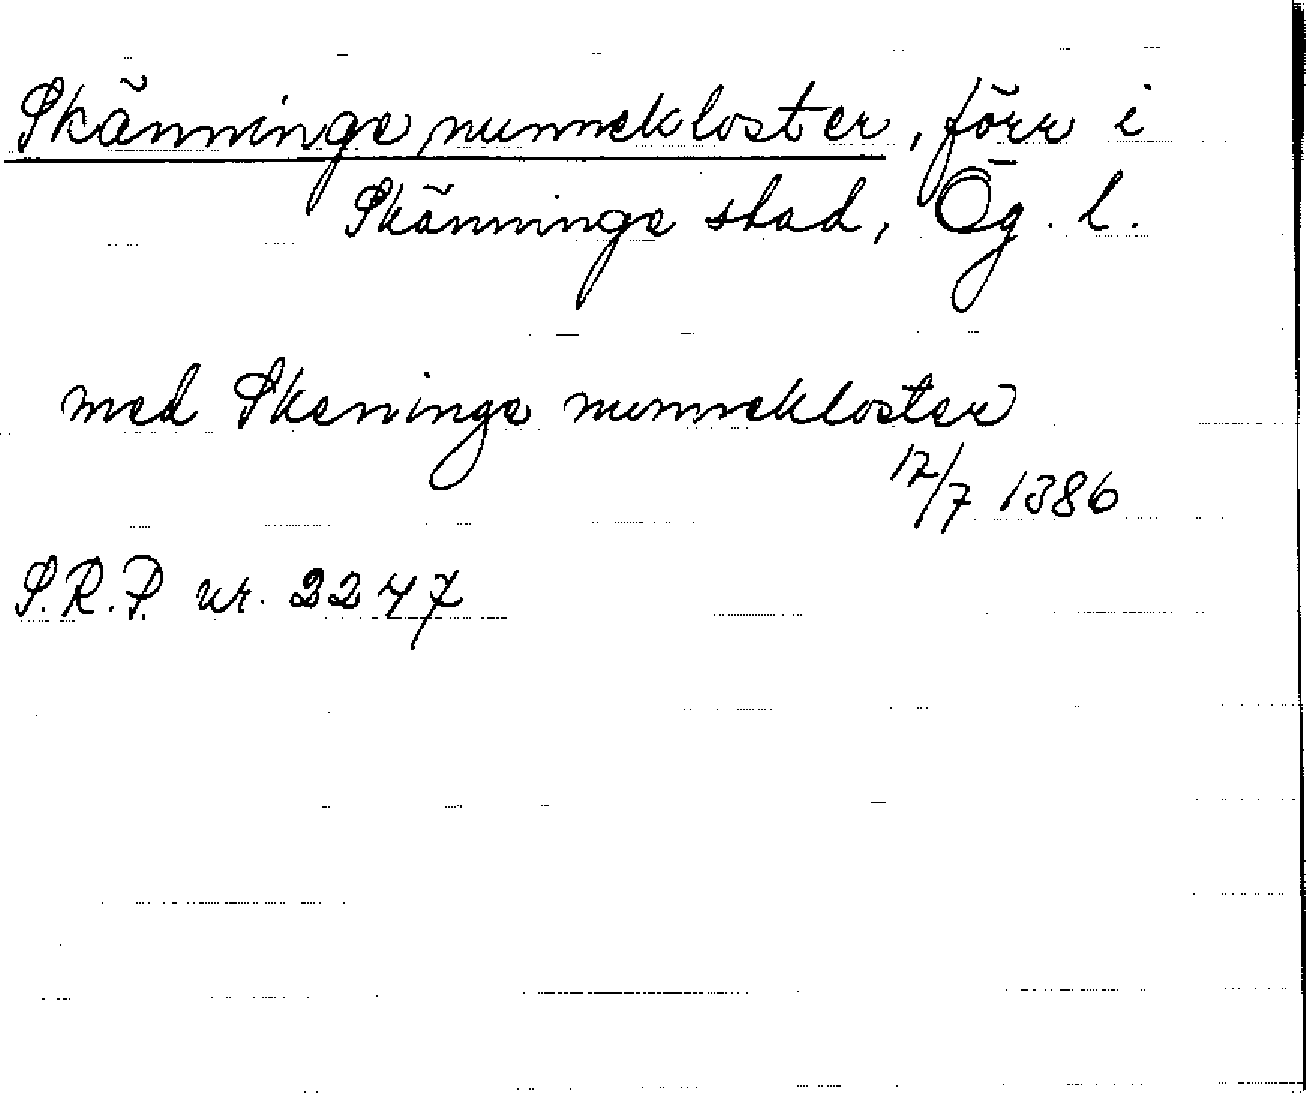 Skänninge nunnekloster, förr i
Skänninge stad, Ög. l.
med Skeninge nunnekloster
12/7 1386
S.R.P. nr. 2247